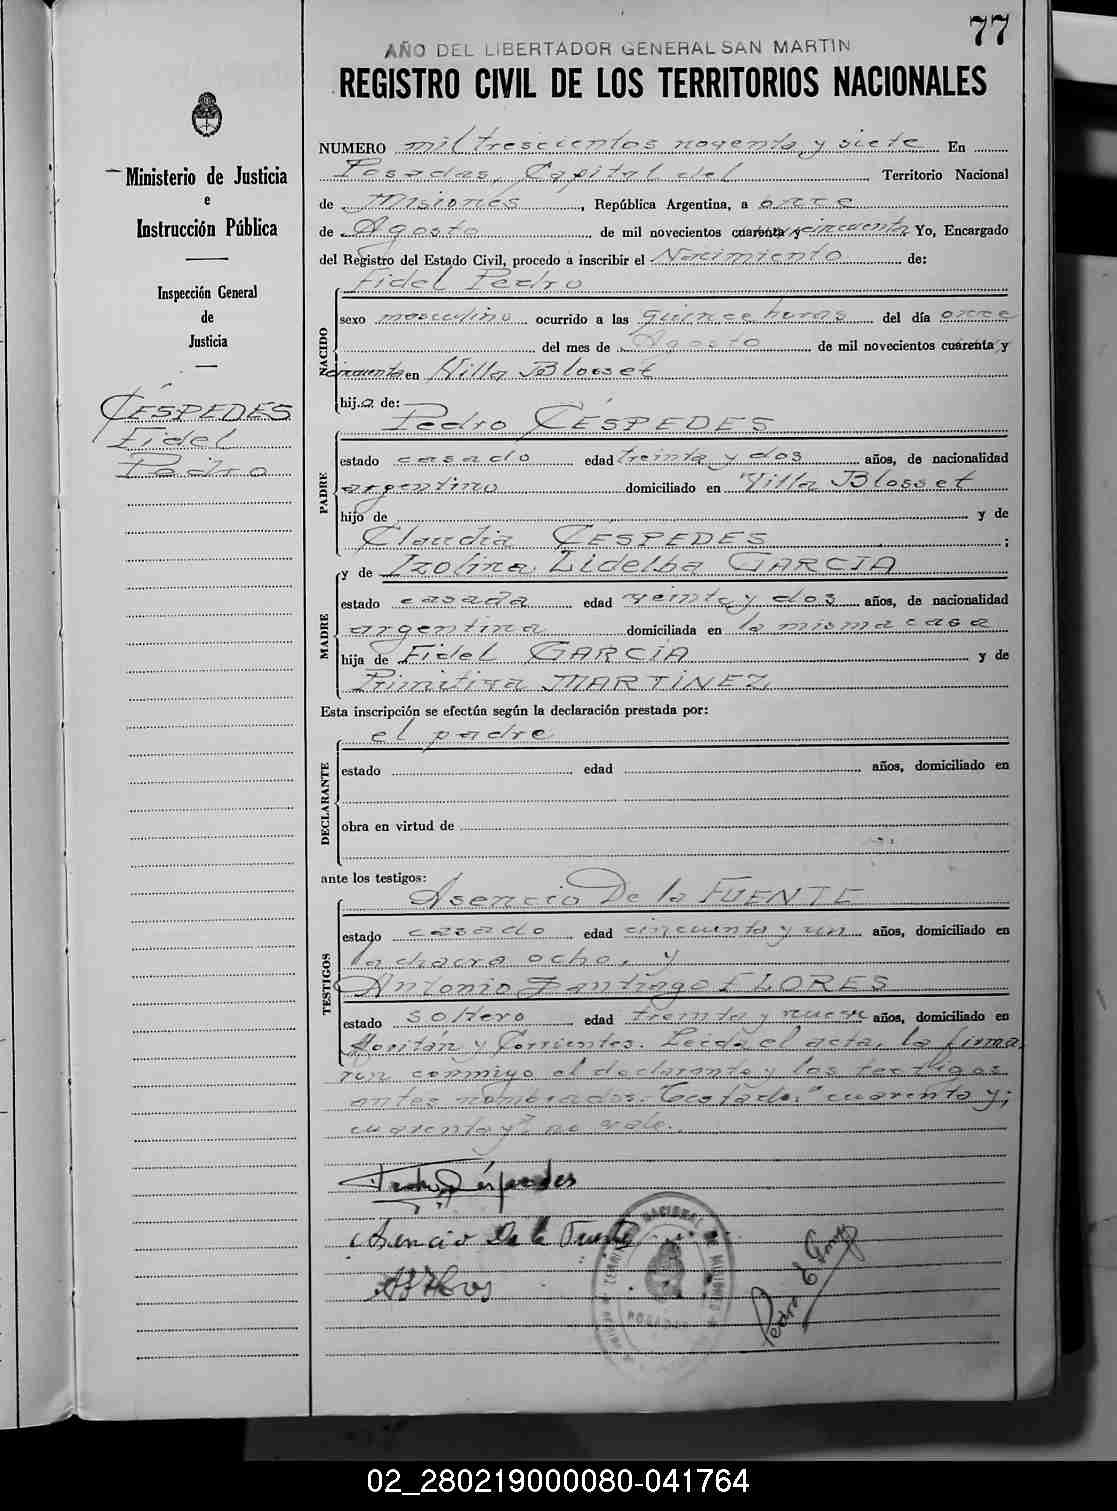 77
AÑO DEL LIBERTADOR GENERAL SAN MARTIN
REGISTRO CIVIL DE LOS TERRITORIOS NACIONALES
Ministerio de Justicia
e
Instrucción Pública
Inspección General
de
Justicia
CÉSPEDES
Fidel
Pedro
NUMERO mil trescientos noventa y siete En
Posadas, Capital del Territorio Nacional
de Misiones, República Argentina, a once
de Agosto de mil novecientos cuarenta y cincuenta Yo, Encargado
del Registro del Estado Civil, procedo a inscribir el Nacimiento de:
Fidel Pedro
NACIDO
sexo masculino ocurrido a las quince horas del día once
del mes de Agosto de mil novecientos cuarenta y
cincuenta en Villa Blosset
hijo de:
Pedro CÉSPEDES
PADRE
estado casado edad treinta y dos años, de nacionalidad
argentino domiciliado en Villa Blosset
hijo de y de
Claudia CESPEDES ;
MADRE
y de Izolina Lidelba GARCIA
estado casada edad veinte y dos años, de nacionalidad
argentina domiciliada en la misma casa
hija de Fidel GARCÍA y de
Primitiva MARTINEZ,
Esta inscripción se efectúa según la declaración prestada por:
el padre
DECLARANTE
estado edad años, domiciliado en
obra en virtud de
ante los testigos:
Asencio De la FUENTE
TESTIGOS
estado casado edad cincuenta y un años, domiciliado en
la chacra ocho, y
Antonio Santiago FLORES
estado soltero edad treinta y nueve años, domiciliado en
y Corrientes. Leida el acta, la firma
ron conmigo el declarante y los testigos
antes nombrados. Testado: "cuarenta y;
cuarenta y" no vale.
Pedro Céspedes
Asencio De la Fuente
TERRITORIO NACIONAL DE MISIONES
POSADAS
Pedro E
02_280219000080-041764